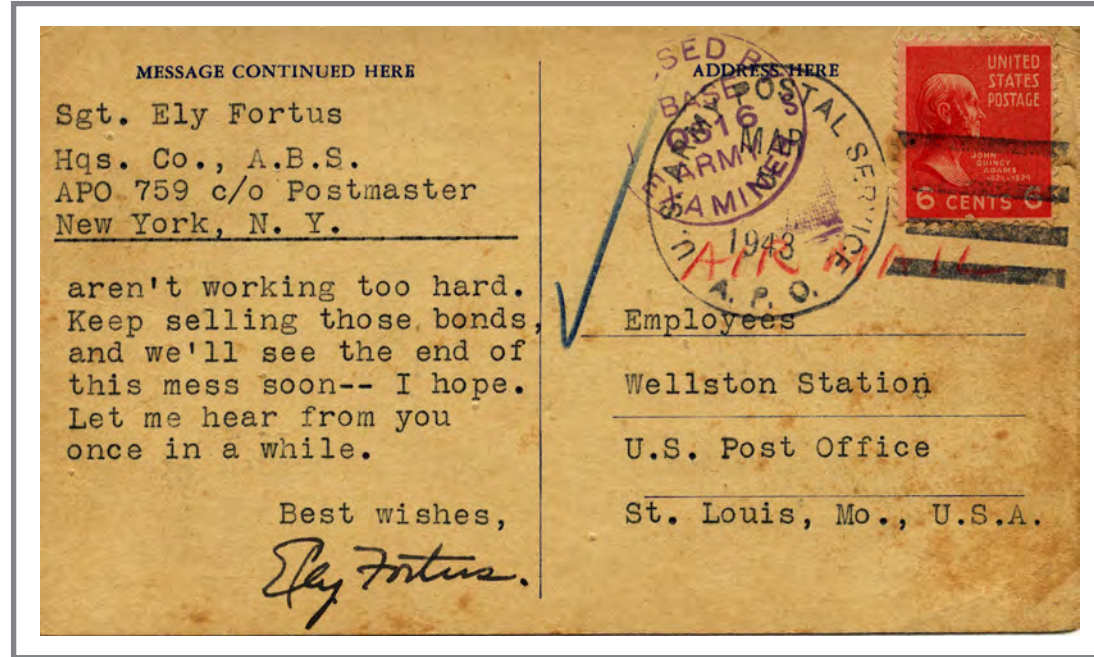 MESSAGE CONTINUED HERE
Sgt. Ely Fortus
Hqs. Co., A.B.S.
APO 759 c/o Postmaster
New York, N. Y.
aren't working too hard.
Keep selling those bonds,
and we'll see the end of
this mess soon-- I hope.
Let me hear from you
once in a while.
Best wishes,
Ely Fortus.
ADDRESS HERE
BASE
ARMY
U.S. ARMY POSTAL SERVICE
MAR
1943
A. P. O.
UNITED
STATES
POSTAGE
JOHN
QUINCY
ADAMS
6 CENTS 6
AIR MAIL
Employees
Wellston Station
U.S. Post Office
St. Louis, Mo., U.S.A.